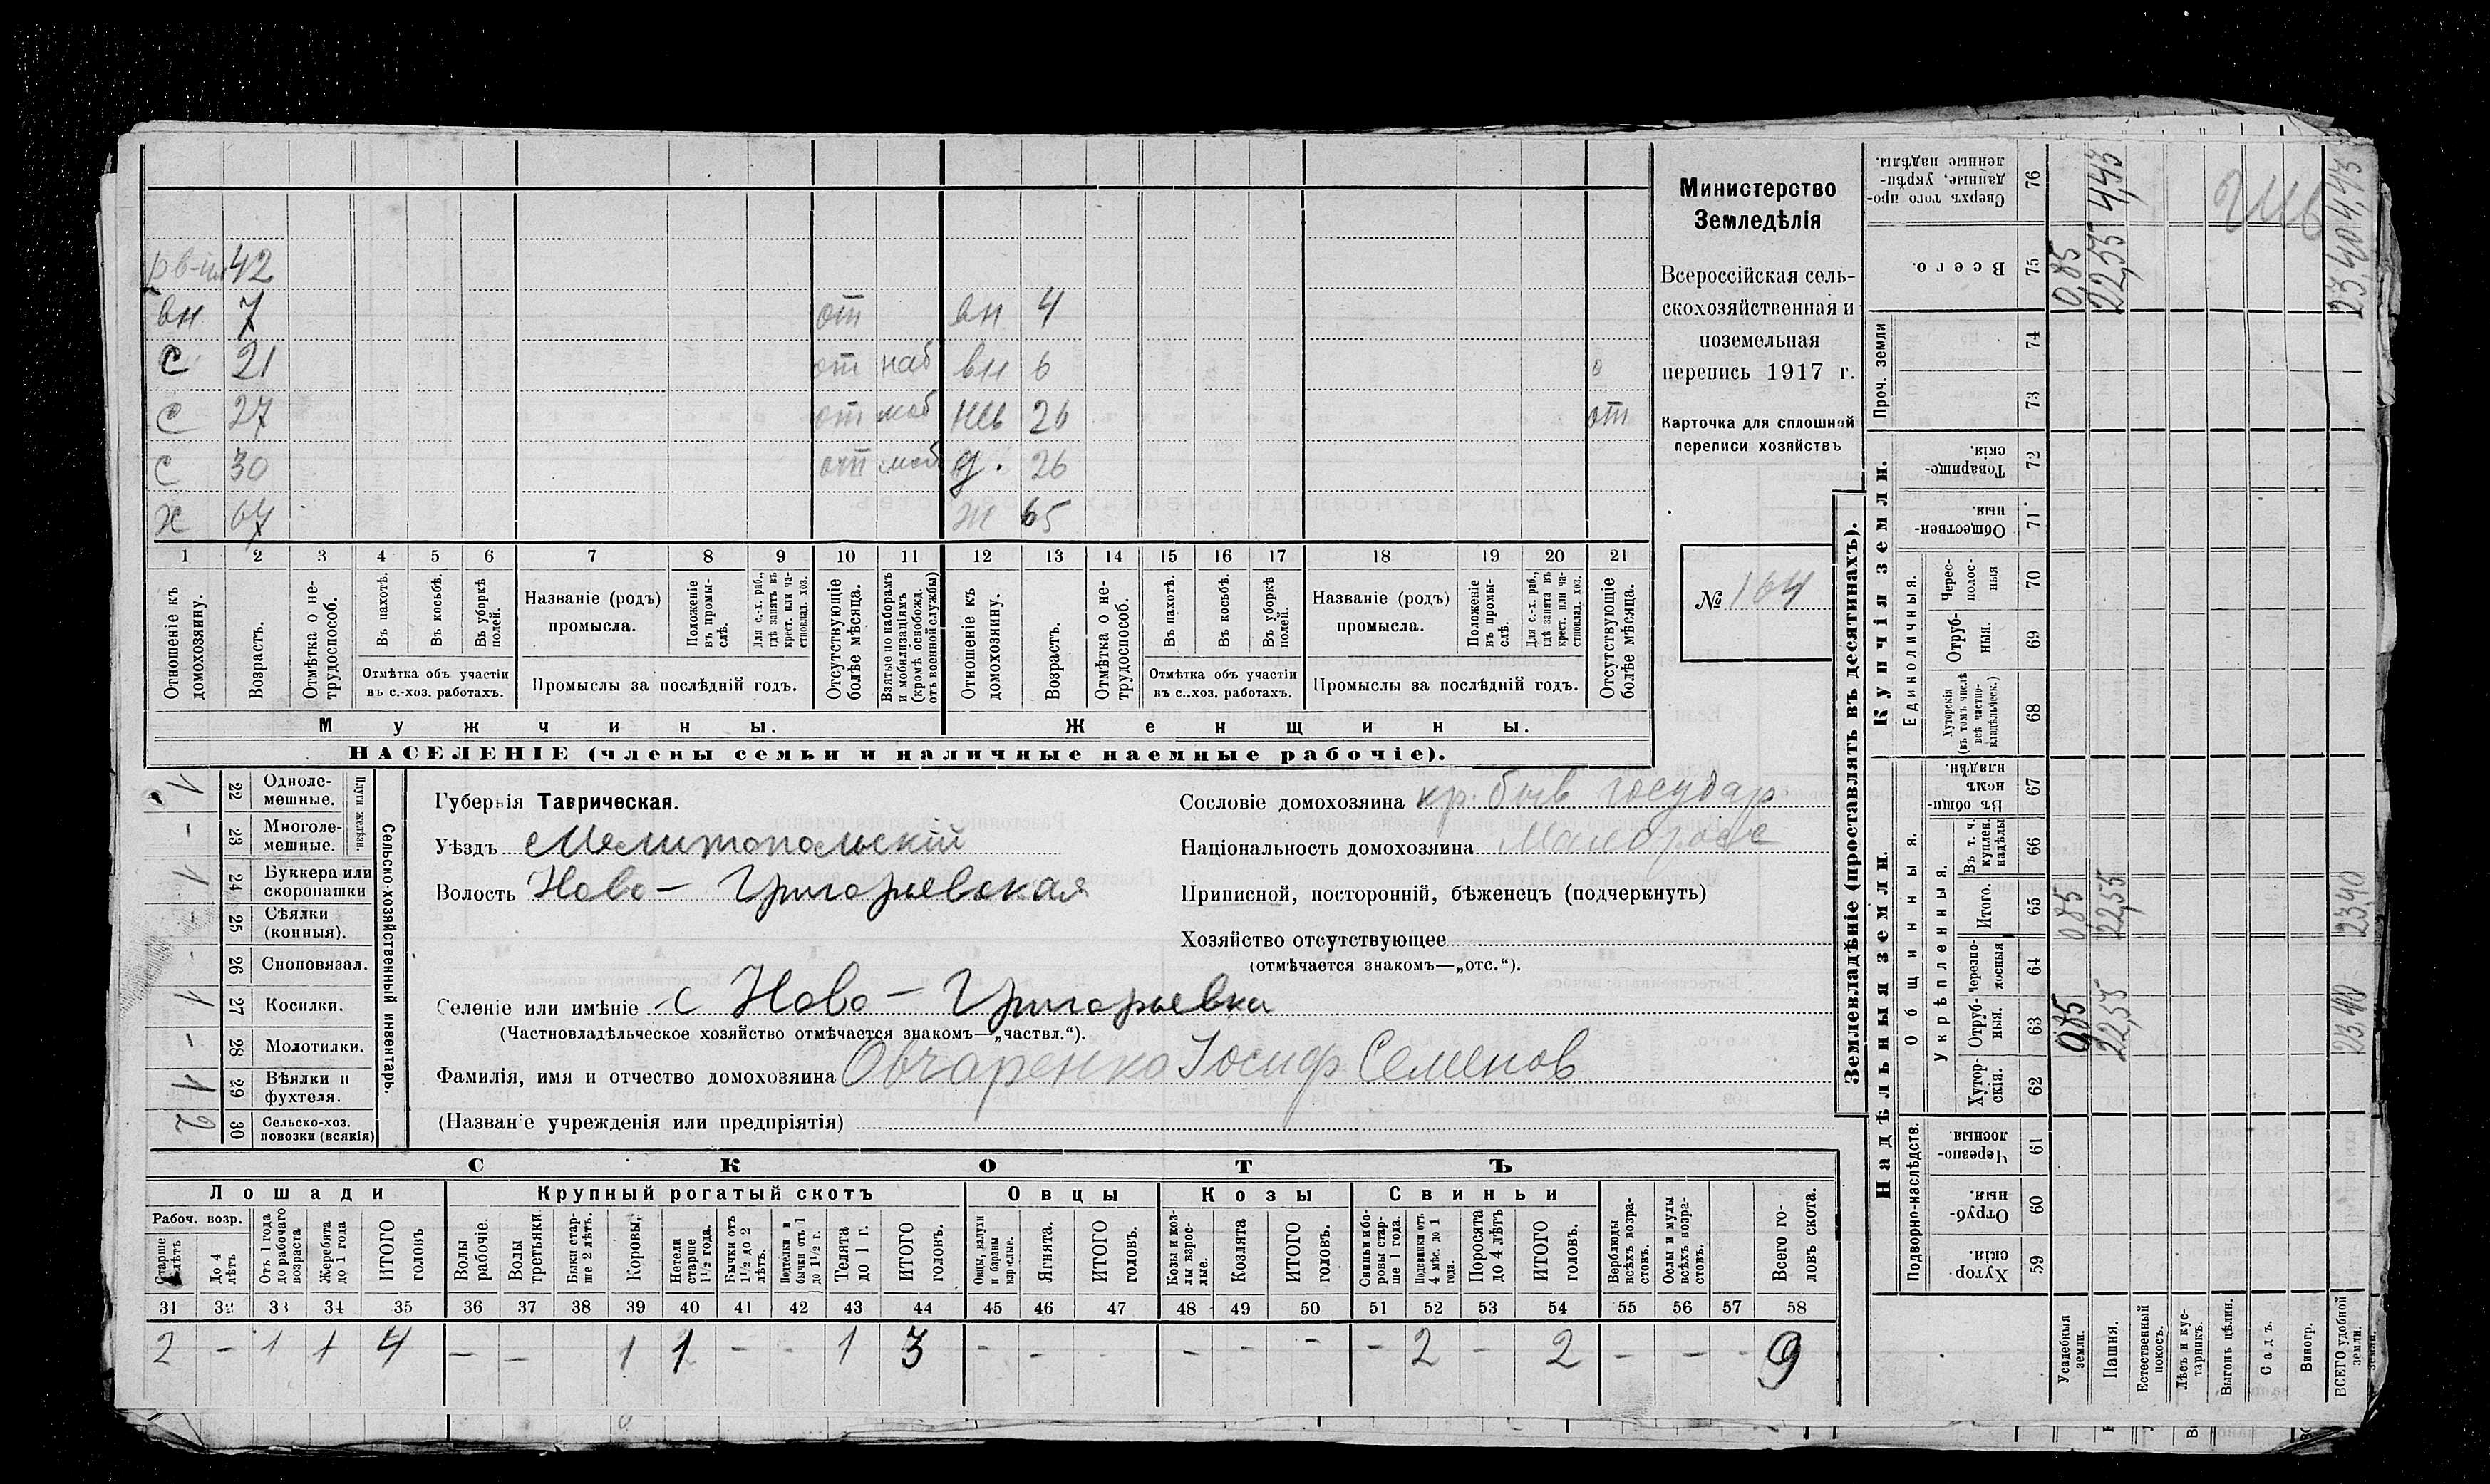 Министерство
Земледѣлія
Всероссійская сель-
скохозяйственная и
поземельная
перепись 1917 г.
Карточка для сплошной
переписи хозяйствъ
№ 164
42
вн 7 от вн 4
с 21 от наб вн 6 о
с 27 от моб нев 26 от
с 30 от моб д. 26
х 67 ж 65
1 2 3 4 5 6 7 8 9 10 11 12 13 14 15 16 17 18 19 20 21
Отношеніе къ домохозяину.
Возрастъ.
Отмѣтка о не-
трудоспособ.
Въ пахотѣ.
Въ косьбѣ.
Въ уборкѣ полей.
Отмѣтка объ участіи
въ с.-хоз. работахъ.
Названіе (родъ)
промысла.
Положеніе
въ промы-
слѣ.
Для с.-х. раб.,
гдѣ занятъ въ
крест. или ча-
стновлад. хоз.
Промыслы за послѣдній годъ.
Отсутствующіе
болѣе мѣсяца.
Взятые по наборамъ
и мобилизаціямъ
(кромѣ освобожд.
отъ военной службы)
Отношеніе къ
домохозяину.
Возрастъ.
Отмѣтка о не-
трудоспособ.
Въ пахотѣ.
Въ косьбѣ.
Въ уборкѣ
полей.
Отмѣтка объ участіи
въ с.-хоз. работахъ.
Названіе (родъ)
промысла.
Положеніе
въ промы-
слѣ.
Для с.-х. раб.,
гдѣ занята въ
крест. или ча-
стновлад. хоз.
Промыслы за послѣдній годъ.
Отсутствующіе
болѣе мѣсяца.
Мужчины.
Женщины.
НАСЕЛЕНІЕ (члены семьи и наличные наемные рабочіе).
Сельско-хозяйственный инвентарь.
Плуги желѣзн.
1 22 Одноле-
мешные.
- 23 Многоле-
мешные.
1 24 Буккера или
скоропашки
- 25 Сѣялки
(конныя).
- 26 Сноповязал.
1 27 Косилки.
- 28 Молотилки.
1 29 Вѣялки и
фухтеля.
2 30 Сельско-хоз.
повозки (всякія)
Губернія Таврическая.
Уѣздъ Мелитопольскій
Волость Ново-Григорьевская
Сословіе домохозяина кр. быв государ.
Національность домохозяина Малоросс
Приписной, посторонній, бѣженецъ (подчеркнуть)
Хозяйство отсутствующее
(отмѣчается знакомъ—„отс.“).
Селеніе или имѣніе с Ново-Григорьевка
(Частновладѣльческое хозяйство отмѣчается знакомъ—„частвл.“).
Фамилія, имя и отчество домохозяина Овчаренко Іосиф Семенов
(Названіе учрежденія или предпріятія)
СКОТЪ
Лошади
Крупный рогатый скотъ
Овцы
Козы
Свиньи
Рабоч. возр.
Старше
4 лѣтъ
До 4
лѣтъ
Отъ 1 года
до рабочаго
возраста
Жеребята
до 1 года
ИТОГО
головъ
Волы
рабочіе.
Волы
третьяки
Быки стар-
ше 2 лѣтъ.
Коровы.
Нетели
старше
1½ года.
Бычки отъ
1½ до 2
лѣтъ.
Подтелки и
бычки отъ 1
до 1½ г.
Телята
до 1 г.
ИТОГО
головъ.
Овцы, валухи
и бараны
взрослые.
Ягнята.
ИТОГО
головъ.
Козы и коз-
лы взрос-
лые.
Козлята
ИТОГО
головъ.
Свиньи бо-
ровы стар-
ше 1 года.
Подсвинки отъ
4 мѣс. до 1
года.
Поросята
до 4 лѣтъ
ИТОГО
головъ.
Верблюды
всѣхъ возра-
стовъ.
Ослы и мулы
всѣхъ возра-
стовъ.
Всего го-
ловъ скота.
31 32 33 34 35 36 37 38 39 40 41 42 43 44 45 46 47 48 49 50 51 52 53 54 55 56 57 58
2 - 1 1 4 - - 1 1 - - 1 3 - - - - - - 2 - 2 - - - 9
Землевладѣніе (проставлять въ десятинахъ).
Надѣльныя земли.
Купчія земли.
Проч. земли
Подворно-наслѣдств.
Общинныя.
Укрѣпленныя.
Единоличныя.
Сверхъ того про-
данные, укрѣп-
ленные надѣлы.
76
Всего.
75
74
73
Товарище-
скія.
72
Обществен-
ныя.
71
Черес-
полос-
ныя
70
Отруб-
ныя.
69
Хуторскія
(въ томъ числѣ
всѣ частно-
владѣльческ.)
68
Въ общин-
номъ
владѣн.
67
Въ т. ч.
куплен.
надѣлы
66
Итого.
65
Черезпо-
лосныя
64
Отруб-
ныя.
63
Хутор-
скія.
62
Черезпо-
лосныя.
61
Отруб-
ныя.
60
Хутор-
скія.
59
Усадебныя
земли.
0,85 0,85 0,85
Пашня.
22,55 22,55 22,55 4,43
Естественный
покосъ.
Лѣсъ и кус-
тарникъ.
Выгонъ цѣлин.
Садъ.
Виногр.
ВСЕГО удобной
земли.
23,40 23,40 23,40 4,43